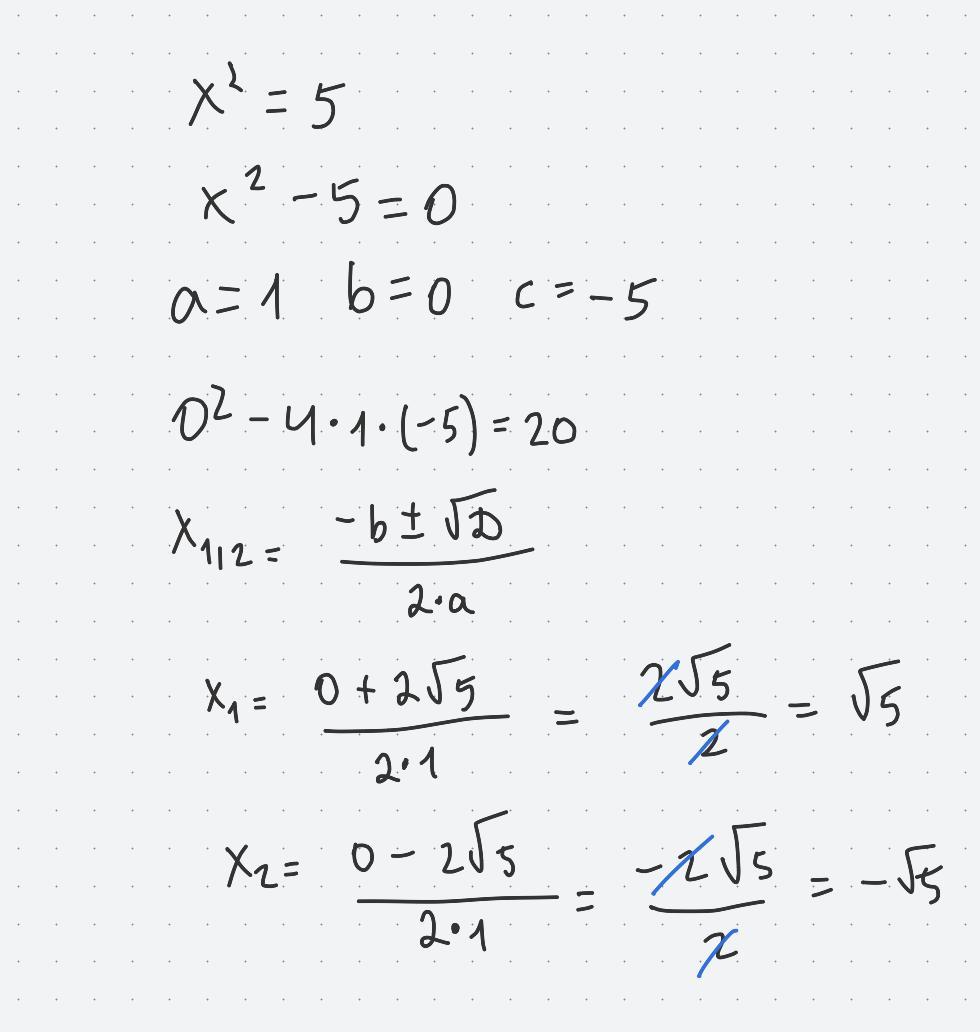 x² = 5
x² - 5 = 0
a = 1 b = 0 c = -5
0² - 4 · 1 · (-5) = 20
x₁|₂ = (-b ± √D) / (2 · a)
x₁ = (0 + 2√5) / (2 · 1) = 2√5 / 2 = √5
x₂ = (0 - 2√5) / (2 · 1) = -2√5 / 2 = -√5